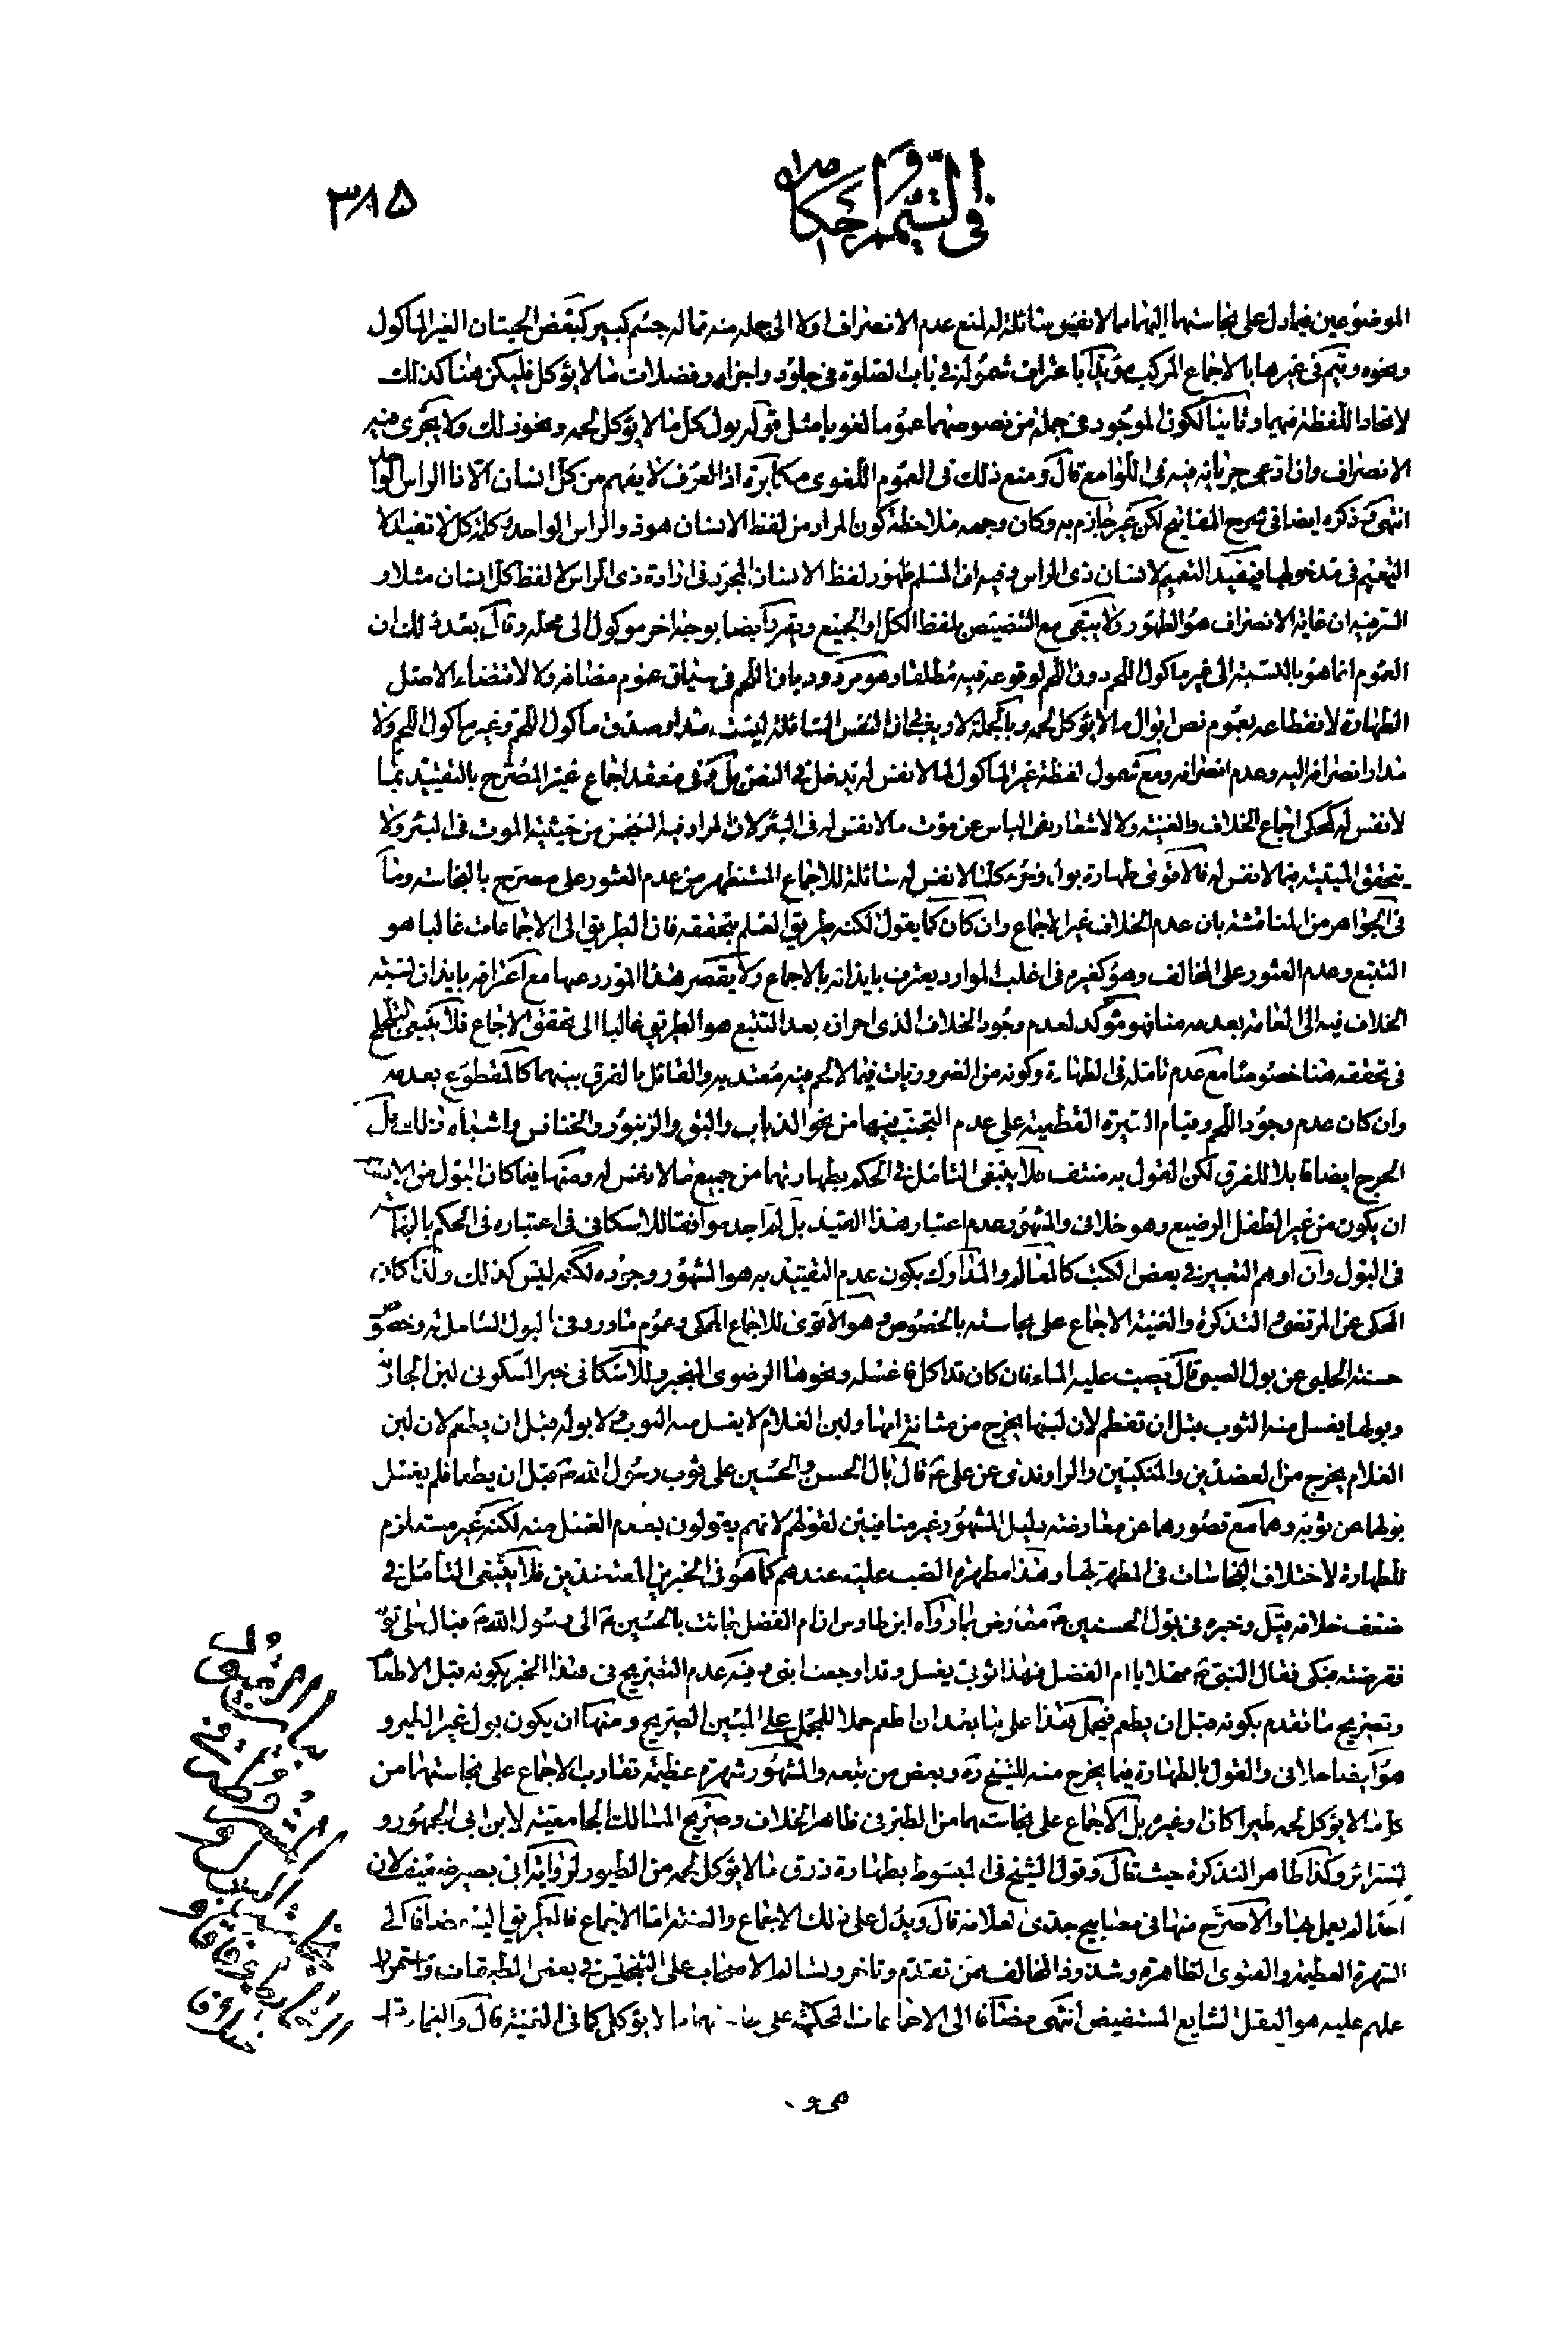 في التيمم واحكامه
٣٨٥
الموضوعين فيما دل على نجاستهما اليهما مما لا نفس سائلة له لمنع عدم الانصراف اولا الى جملة منه مما له جسم كبير كبعض الحيتان الغير الماكول
ونحوه ويتم في غيرها بالاجماع المركب مؤيدا باعتراف شموله في باب الصلوة في جلود واجزاء وفضلات ما لا يؤكل فليكن هنا كذلك
لاتحاد اللفظة فيهما وثانيا لكون الموجود في جملة من نصوصهما عموما لغويا مثل قوله بول كل ما لا يؤكل لحمه ونحو ذلك ولا يجرى فيه
الانصراف وان ادعى جريانه فيه في اللوامع قال ومنع ذلك في العموم اللغوى مكابرة اذ العرف لا يفهم من كل انسان الا ذا الراس الواحد
انتهى وذكره ايضا في شرح المفاتيح لكن غير جازم به وكان وجهه ملاحظة كون المراد من لفظ الانسان هو ذو الراس الواحد وكلمة كل لا تفيد الا
التعميم في مدخولها فيفيد التعميم لانسان ذى الراس وفيه ان المسلم ظهور لفظ الانسان المجرد في ارادة ذى الراس لا لفظ كل انسان مثلا و
السر فيه ان غاية الانصراف هو الظهور ولا يبقى مع التنصيص بلفظ الكل او الجميع وتقريره ايضا بوجه اخر موكول الى محله وقال بعد ذلك ان
العموم انما هو بالنسبة الى غير ماكول اللحم دون اللحم لوقوعه فيه مطلقا وهو مردود بان اللحم في سياق عموم مضافه ولا لاقتضاء الاصل
الطهارة لانقطاعه بعموم نص ابوال ما لا يؤكل لحمه وبالجملة لا ريب في ان النفس السائلة ليست مدار صدق ماكول اللحم وغير ماكول اللحم ولا
مدار انصرافه اليه وعدم انصرافه ومع شمول لفظة غير الماكول لما لا نفس له يدخل في النص بل وفي معقد اجماع غير المصرح بالتقييد بما
لا نفس له كمحكى اجماع الخلاف والغنية ولا لاشعار نفى الباس عن موت ما لا نفس له في البئر لان المراد فيه التنجس من حيثية الموت في البئر ولا
يتحقق الميتية فيما لا نفس له فالاقوى طهارة بول وخرء كل ما لا نفس له سائلة للاجماع المستظهر من عدم العثور على مصرح بالنجاسة وما
في الجواهر من المناقشة بان عدم الخلاف غير الاجماع وان كان كما يقول لكنه طريق العلم بتحققه فان الطريق الى الاجماعات غالبا هو
التتبع وعدم العثور على المخالف وهو كغيره في اغلب الموارد يعترف بايذانه بالاجماع ولا يقصر هذا المورد عنها مع اعترافه بايذان نسبته
الخلاف فيه الى العامة بعدمه منا فهو مؤكد لعدم وجود الخلاف الذى احرازه بعد التتبع هو الطريق غالبا الى تحقق الاجماع فلا ينبغى التامل
في تحققه هنا خصوصا مع عدم تامله في الطهارة وكونه من الضروريات فيما لا لحم فيه معتد به والقائل بالفرق بينهما كالمقطوع بعدمه
وان كان عدم وجود اللحم وقيام السيرة القطعية على عدم التجنب فيها من نحو الذباب والبق والزنبور والخنافس واشباه ذلك بل
الحرج ايضا قابلا للفرق لكن القول به منتف فلا ينبغى التامل في الحكم بطهارتهما من جميع ما لا نفس له ومنها فيما كان البول من الانسان
ان يكون من غير الطفل الرضيع وهو خلافى والمشهور عدم اعتبار هذا القيد بل لم اجد موافقا للاسكافى في اعتباره في الحكم بالنجاسة
في البول وان اوهم التعبير في بعض الكتب كالمعالم والمدارك بكون عدم التقييد به هو المشهور وجوده لكنه ليس كذلك ولذا كان
المحكى عن المرتضى والتذكرة والغنية الاجماع على نجاسته بالخصوص وهو الاقوى للاجماع المحكى وعموم ما ورد في البول الشامل له وخصوص
حسنة الحلبى عن بول الصبى قال يصب عليه الماء فان كان قد اكل فاغسله ونحوها الرضوى المنجبر وللاسكافى خبر السكونى لبن الجارية
وبولها يغسل منه الثوب قبل ان تفطم لان لبنها يخرج من مثانة امها ولبن الغلام لا يغسل منه الثوب ولا بوله قبل ان يطعم لان لبن
الغلام يخرج من العضدين والمنكبين والراوندى عن على ع قال بال الحسن والحسين على ثوب رسول الله ص قبل ان يطعما فلم يغسل
بولهما عن ثوبه وهما مع قصورهما عن معارضة دليل المشهور غير منافيين لقولهم لانهم يقولون بعدم الغسل منه لكنه غير مستلزم
للطهارة لاختلاف النجاسات في المطهر لها وهذا مطهره الصب عليه عندهم كما هو في الخبرين المعتضدين فلا ينبغى التامل في
ضعف خلافه قيل وخبره في بول الحسنين ع معارض بما رواه ابن طاوس ان ام الفضل جائت بالحسين ع الى رسول الله ص فبال على ثوبه
فقرصته فبكى فقال النبى ص مهلا يا ام الفضل فهذا ثوبى يغسل وقد اوجعت ابنى وفيه عدم التصريح في هذا الخبر بكونه قبل الاطعام
وتصريح ما تقدم بكونه قبل ان يطعم فيحمل هذا على ما بعد ان اطعم حملا للمجمل على المبين الصريح ومنها ان يكون بول غير الطير و
هو ايضا خلافى والقول بالطهارة فيما يخرج منه للشيخ ره وبعض من تبعه والمشهور شهرة عظيمة تقارب الاجماع على نجاستهما من
كل ما لا يؤكل لحمه طيرا كان او غيره بل الاجماع على نجاستهما من الطير في ظاهر الخلاف وصريح المسالك الجامعية لابن ابى الجمهور و
السرائر وكذا ظاهر التذكرة حيث قال وقول الشيخ في المبسوط بطهارة ذرق ما لا يؤكل لحمه من الطيور لرواية ابى بصير ضعيف لان
احدا لم يعمل بها والاصرح منها في مصابيح جدى العلامة قال ويدل على ذلك الاجماع والسنة اما الاجماع فالطريق اليه مضافا الى
الشهرة العظيمة والفتوى الظاهرة وشذوذ المخالف ممن تقدم وتاخر وتسالم الاصحاب على التنجيس في بعض الطبقات واستمرار
عملهم عليه هو النقل الشايع المستفيض انتهى مضافا الى الاجماعات المحكية على نجاستهما مما لا يؤكل كما في الغنية قال والنجاسات
هى و